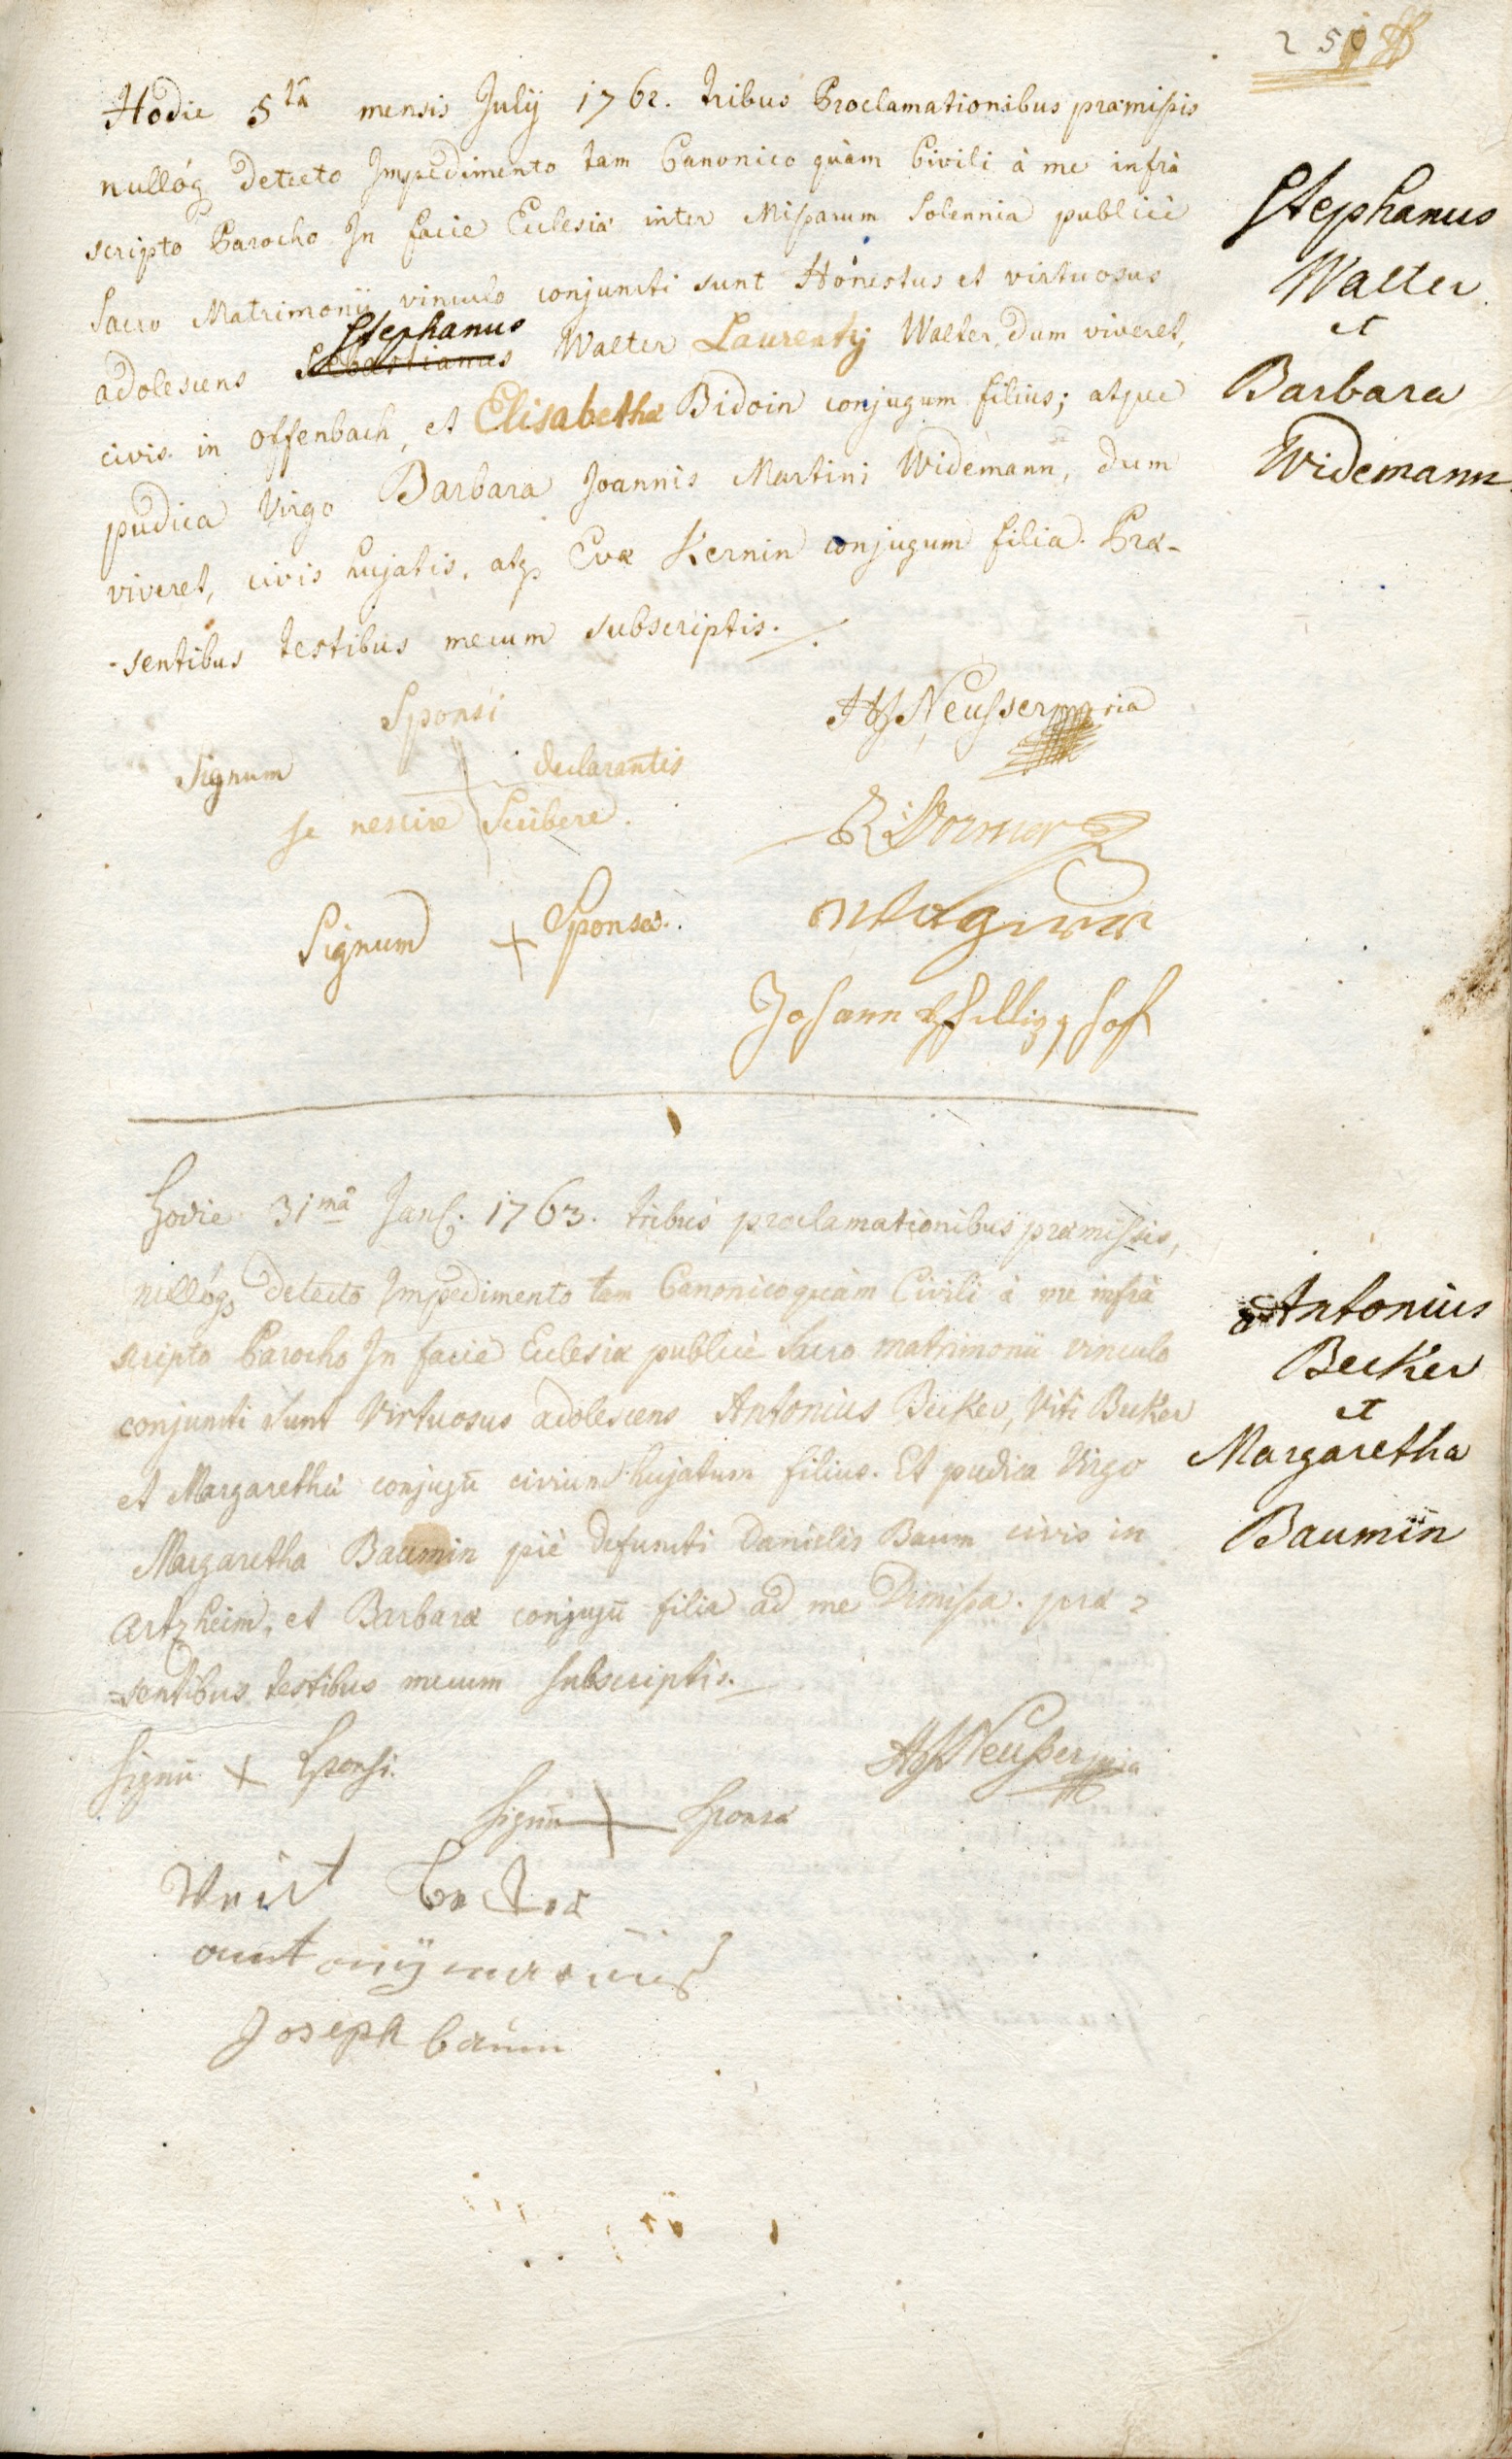 25
Hodie 5ta mensis Julÿ 1762. tribus Proclamationibus præmissis
nullóq detecto Impedimento tam Canonico quàm Civili à me infrà
scripto Parocho In facie Ecclesiæ inter Missarum Solennia publicè
Sacro Matrimonii vinculo conjuncti sunt Honestus et virtuosus
Stephanus
adolescens Sebastianus Walter Laurentÿ Walter, dum viveret,
civis in Offenbach, et Elisabethæ Bidoin conjugum filius; atque
pudica Virgo Barbara Joannis Martini Widemann, dum
viveret, civis hujatis, atq Evæ Kernin conjugum filia. Præ-
-sentibus testibus mecum subscriptis.
Stephanus
Walter
et
Barbara
Widemann
Sponsi
Signum + declarantis
se nescire Scribere.
Signum + Sponsæ.
Neusser
Johann hof
Hodie 31mâ Jan. 1763. tribus proclamationibus præmissis,
nullóq detecto Impedimento tam Canonico quàm Civili à me infrà
scripto Parocho In facie Ecclesiæ publicè Sacro matrimonii vinculo
conjuncti sunt Virtuosus adolescens Antonius Becker, Viti Becker
et Margarethæ conjugū civium hujatum filius. Et pudica Virgo
Margaretha Baumin piè defuncti Danielis Baum civis in
Artzheim, et Barbaræ conjugū filia ad me Dimissa. præ
=sentibus testibus mecum subscriptis.
Antonius
Becker
et
Margaretha
Baumin
Signū + Sponsi.
Neusser
Signū + Sponsæ
Joseph baum